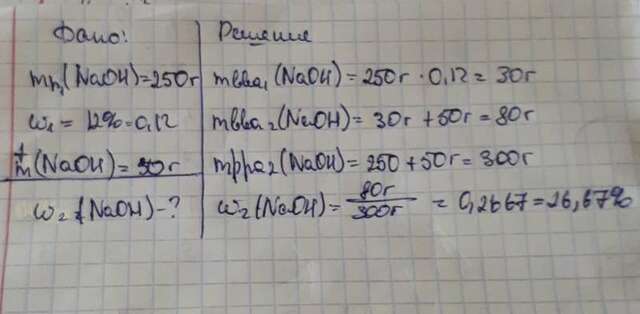 Дано:
mр₁(NaOH)=250г
ω₁ = 12%=0,12
m(NaOH)= 50г
ω₂ (NaOH)-?
Решение
mвва₁(NaOH)=250г · 0,12 = 30г
mвва₂(NaOH)= 30г +50г=80г
mрра₂(NaOH)= 250 +50г= 300г
ω₂(NaOH)= 80г/300г = 0,2667=26,67%